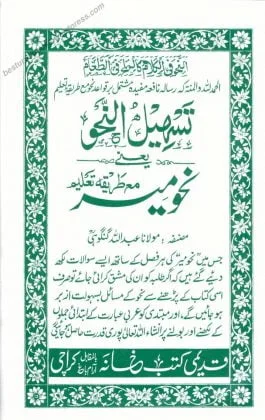 النحو فی الکلام کالملح فی الطعام
الحمد للہ والمنۃ کہ رسالہ نافعہ مفیدہ مشتمل بر قواعد نحو مع طریقۂ تعلیم
تسہیل النحو
یعنی
نحو میر مع طریقۂ تعلیم
مصنفہ: مولانا عبد اللہ گنگوہیؒ
جس میں نحو میر کی ہر فصل کے ساتھ ایسے سوالات لکھ
دیئے گئے ہیں کہ اگر طلبہ کو ان کی مشق کرائی جائے تو صرف
اسی کتاب کے پڑھنے سے نحو کے مسائل بسہولت ازبر
ہو جائیں گے، اور مبتدی کو عربی عبارت کے ابتدائی جملوں
کے لکھنے اور بولنے پر انشاء اللہ تعالیٰ پوری قدرت حاصل ہو جائیگی
قدیمی کتب خانہ کراچی